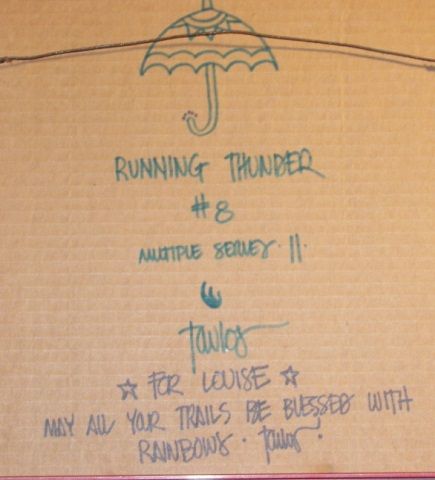 RUNNING THUNDER
#8
MULTIPLE SERIES · II ·
Taylor
☆ FOR LOUISE ☆
MAY ALL YOUR TRAILS BE BLESSED WITH
RAINBOWS · Taylor!